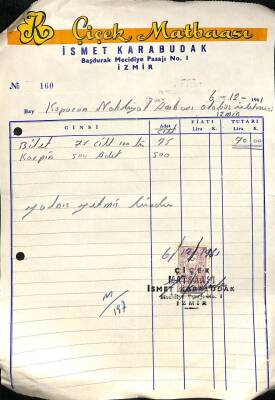 ÇK Çiçek Matbaası
İSMET KARABUDAK
Başdurak Mecidiye Pasajı No. 1
İZMİR
№ 160
6-12-1961
Bay Kaparan Nakliyat Ambarı otobüs işletmesi
İzmir
CİNSİ Adet FİATI TUTARI
Cilt Lira K. Lira K.
Bilet 75 Cilt 100 lü 75 70 00
Karpin 500 Adet 500
yalnız yetmiş liradır
6/12/961
ÇİÇEK
MATBAASI
İSMET KARABUDAK
Mecidiye Pasajı No. 1
İZMİR
M/197